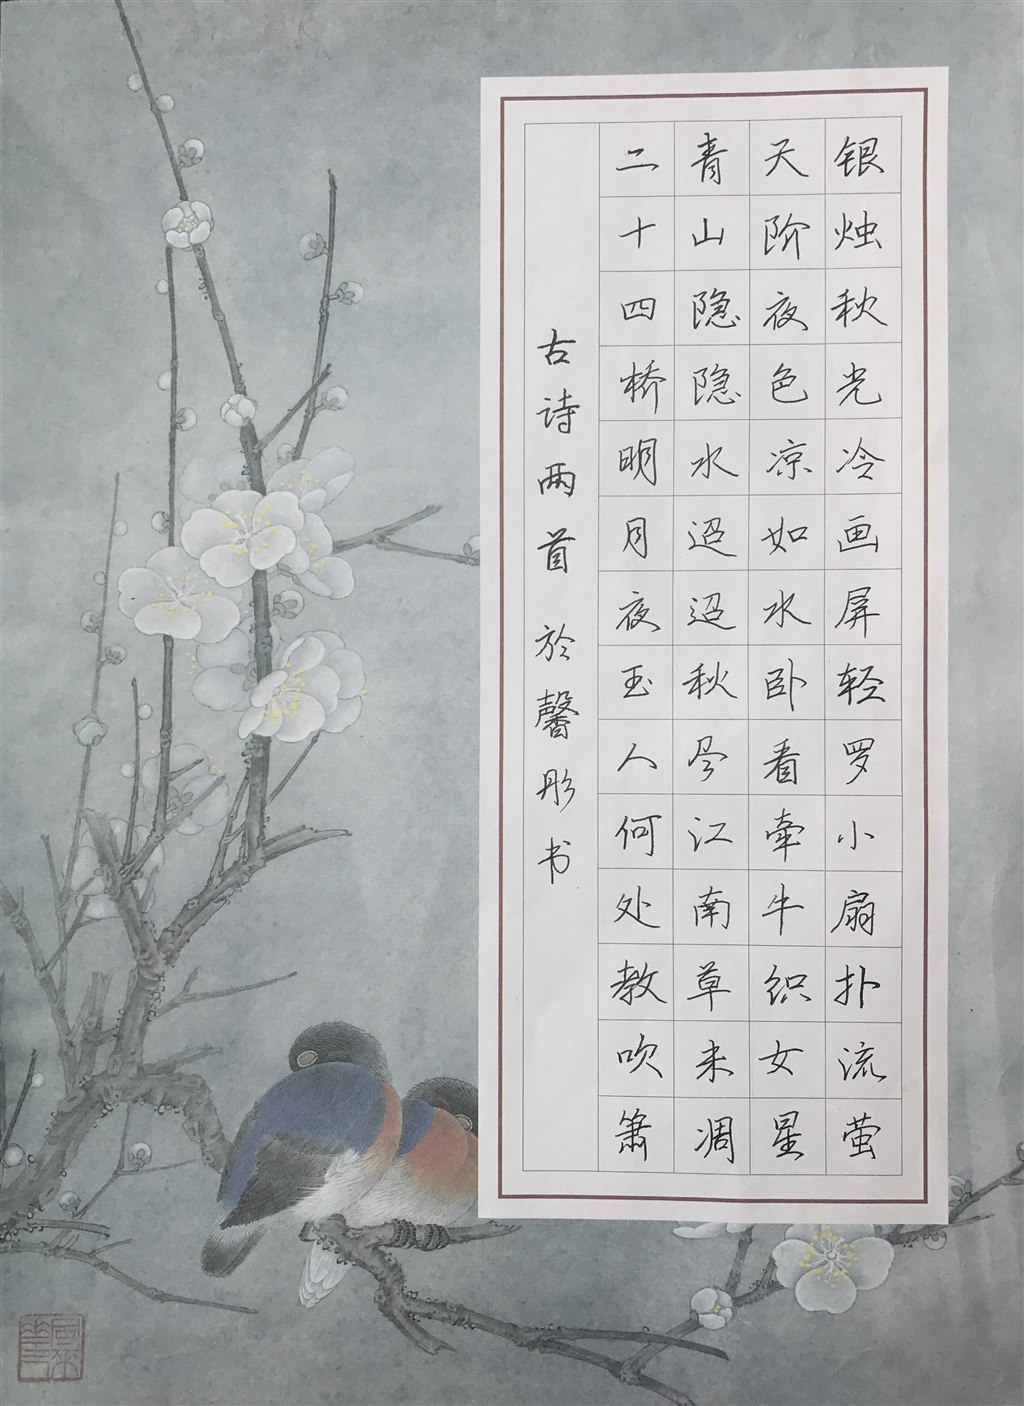 银烛秋光冷画屏轻罗小扇扑流萤
天阶夜色凉如水卧看牵牛织女星
青山隐隐水迢迢秋尽江南草未凋
二十四桥明月夜玉人何处教吹箫
古诗两首 於馨彤书